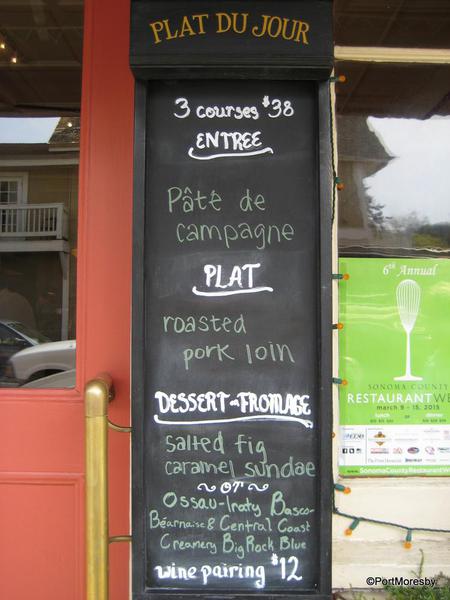 PLAT DU JOUR
3 courses $38
ENTREE
Pâté de
campagne
PLAT
roasted
pork loin
DESSERT or FROMAGE
salted fig
caramel sundae
~ or ~
Ossau-Iraty Basco-
Béarnaise & Central Coast
Creamery Big Rock Blue
wine pairing $12
6th Annual
SONOMA COUNTY
RESTAURANT WE
march 9 - 15, 2015
lunch or dinner
www.SonomaCountyRestaurantW
©PortMoresby